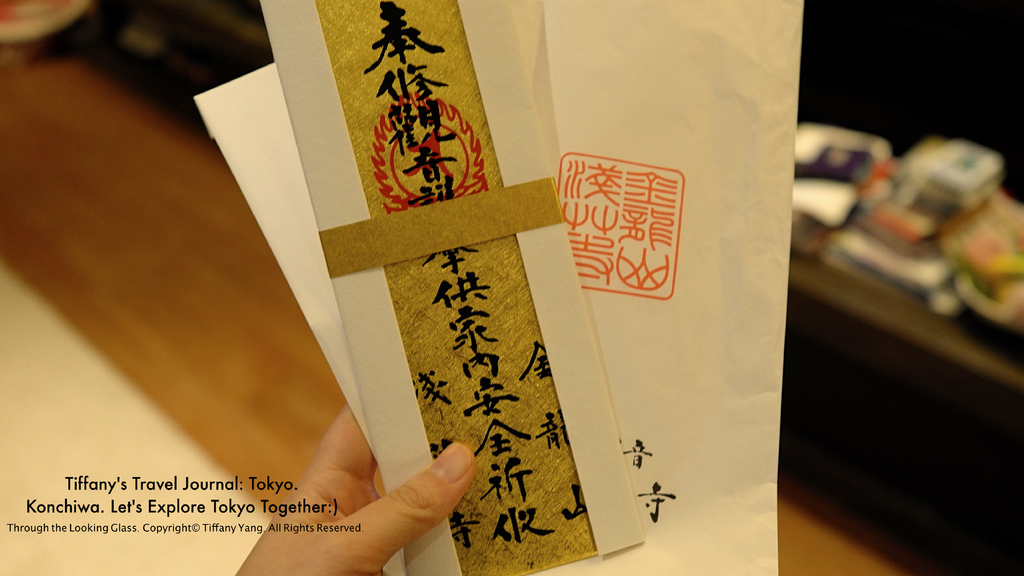 奉修觀音
奉供家内安全祈
金龍山
浅
寺
金龍山
淺草寺
音寺
Tiffany's Travel Journal: Tokyo.
Konchiwa. Let's Explore Tokyo Together:)
Through the Looking Glass. Copyright© Tiffany Yang. All Rights Reserved.